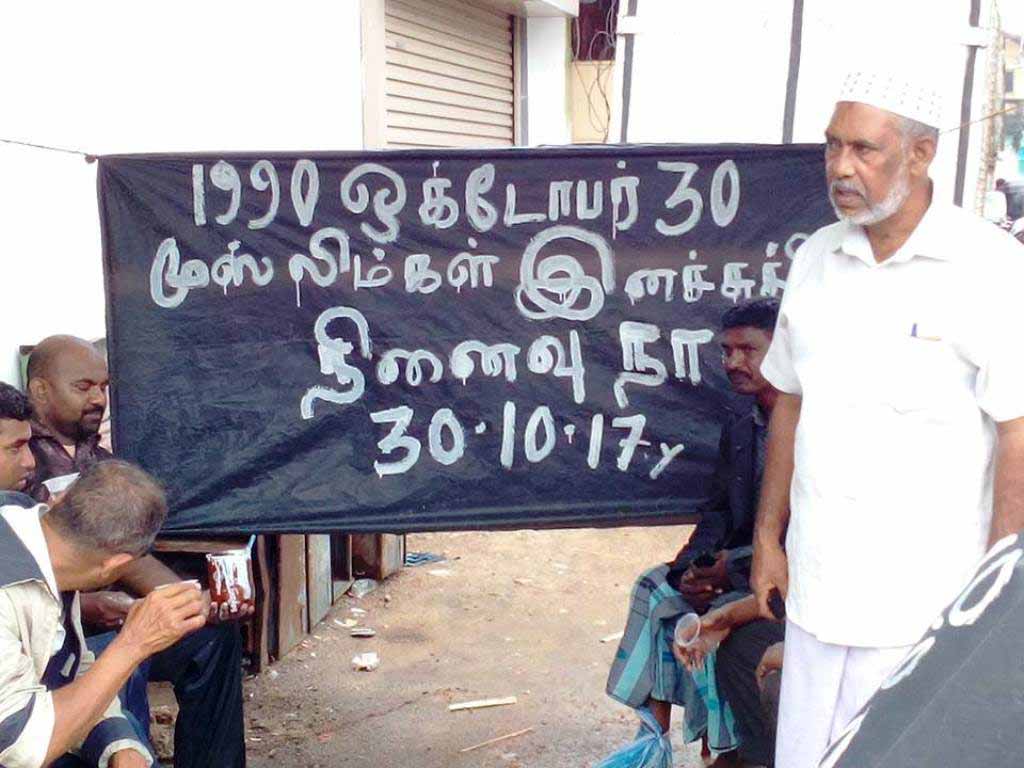 1990 ஒக்டோபர் 30
முஸ்லிம்கள்
நினைவு நா
30.10.17